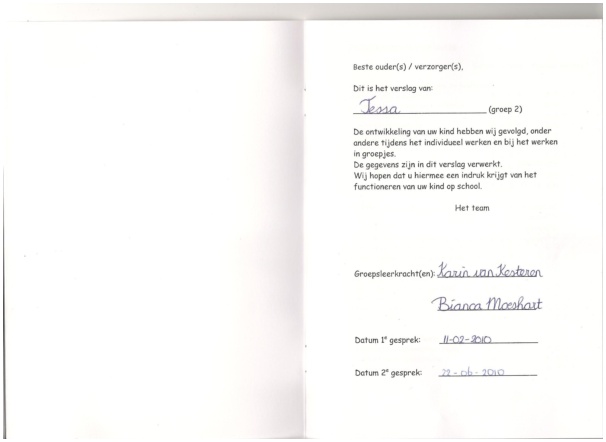 Beste ouder(s) / verzorger(s),
Dit is het verslag van:
Tessa (groep 2)
De ontwikkeling van uw kind hebben wij gevolgd, onder
andere tijdens het individueel werken en bij het werken
in groepjes.
De gegevens zijn in dit verslag verwerkt.
Wij hopen dat u hiermee een indruk krijgt van het
functioneren van uw kind op school.
Het team
Groepsleerkracht(en): Karin van Kesteren
Bianca Moeshart
Datum 1e gesprek: 11-02-2010
Datum 2e gesprek: 22-06-2010